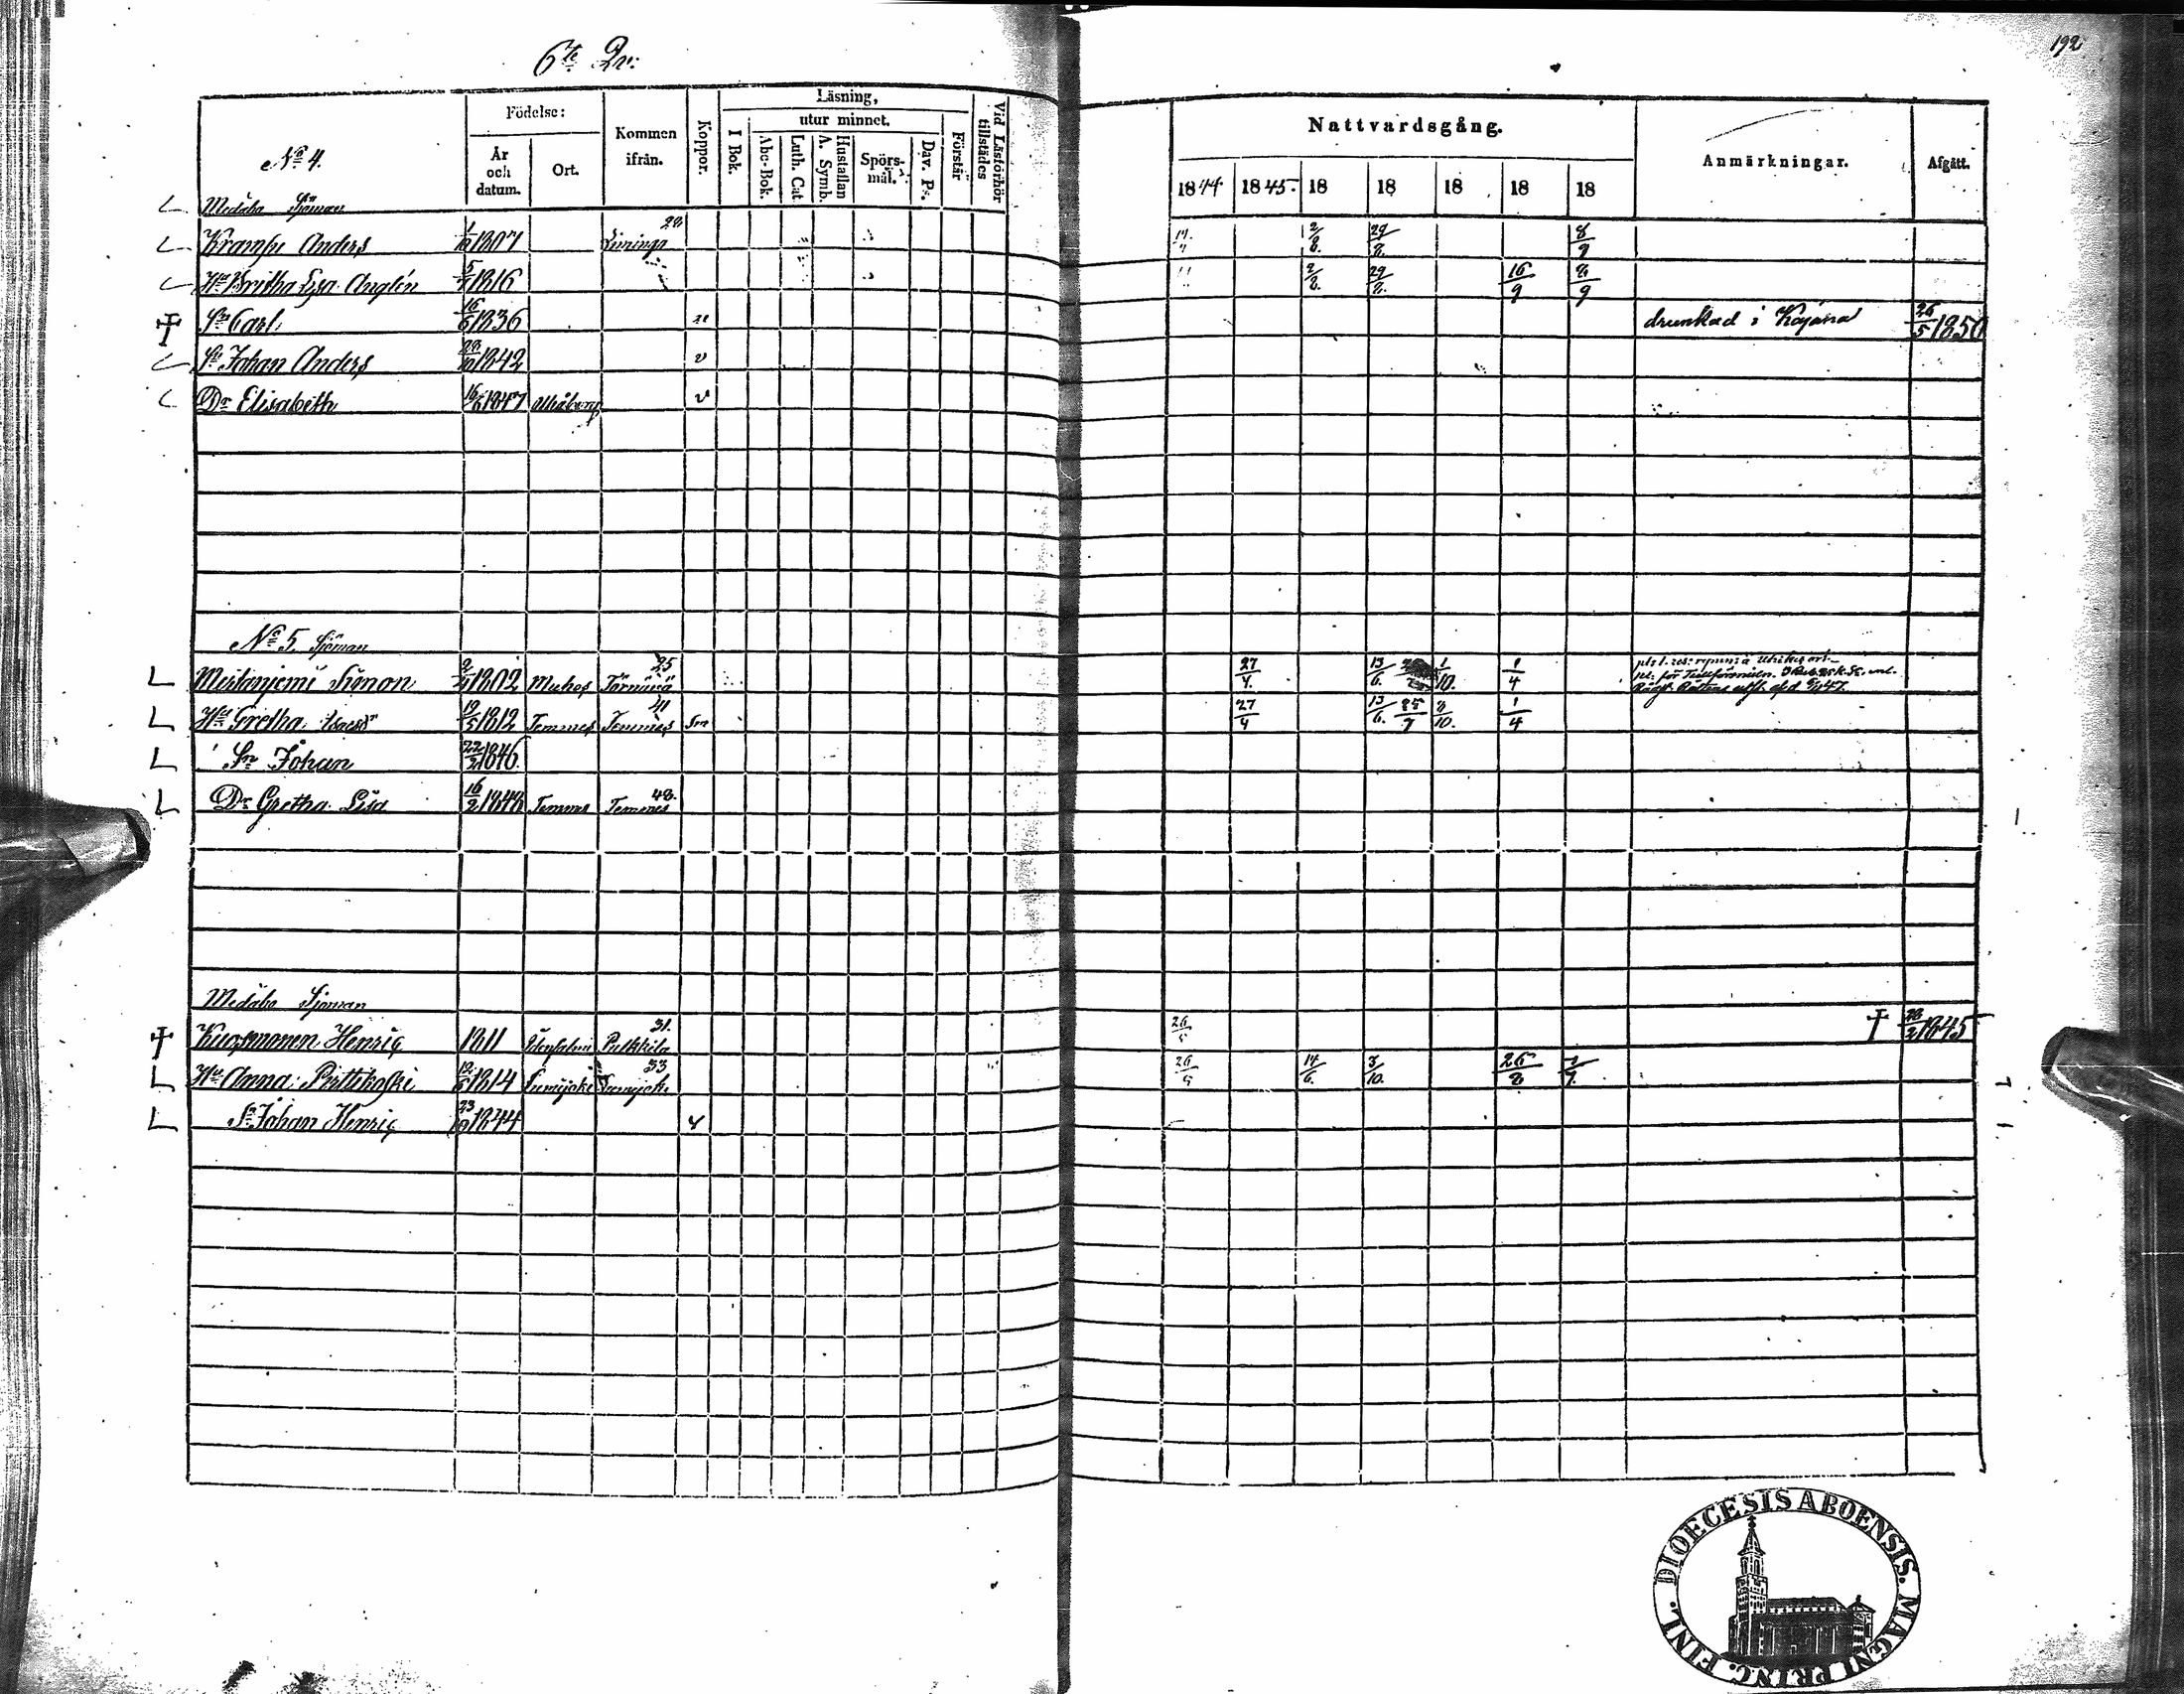 192
6te Qv:
Födelse: Kommen ifrån. Koppor. Läsning, utur minnet. I Bok. Abc-Bok. Luth. Cat. A. Symb. Hustaflan Spörs-mål. Dav. Ps. Förstår Vid Läsförhör tillstädes Nattvardsgång. Anmärkningar. Afgått.
No 4. År och datum. Ort. 1844 1845. 18 18 18 18 18
Medäbo Sjöman
Krampe Anders 1/10 1807 Limingo 28 2/8. 29/8. 8/9
Hu Britha Lisa Anglén 5/4 1816 2/8. 29/8. 16/9 8/9
Sn Carl 16/6 1836 drunknad i Kajana 26/5 1850
Sn Johan Anders 28/10 1842 v
Dr Elisabeth 16/6 1847 Uleåborg v
No 5. Sjöman
Merilanjemi Simon 2/9 1802 Muhos 25 27/4. 13/6 1/10. 1/4
Hu Gretha 19/5 1812 Temmes Temmes 41 27/4 13/6. 25/7 8/10. 1/4
Sn Johan 22/2 1846.
Dr Gretha Lisa 16/2 1848 Temmes Temmes 48.
Medäbo Sjöman
Henric 1811 Idensalmi Pulkkila 31. 26/5 † 28/2 1845
Hu Anna Perttikoski 1814 Lumijoki Lumijoki 33 26/5 14/6. 3/10. 26/8 2/9.
Sn Johan Henric 23/10 1844 v
DIOECESIS ABOENSIS. MAGNI PRINC. FINL.